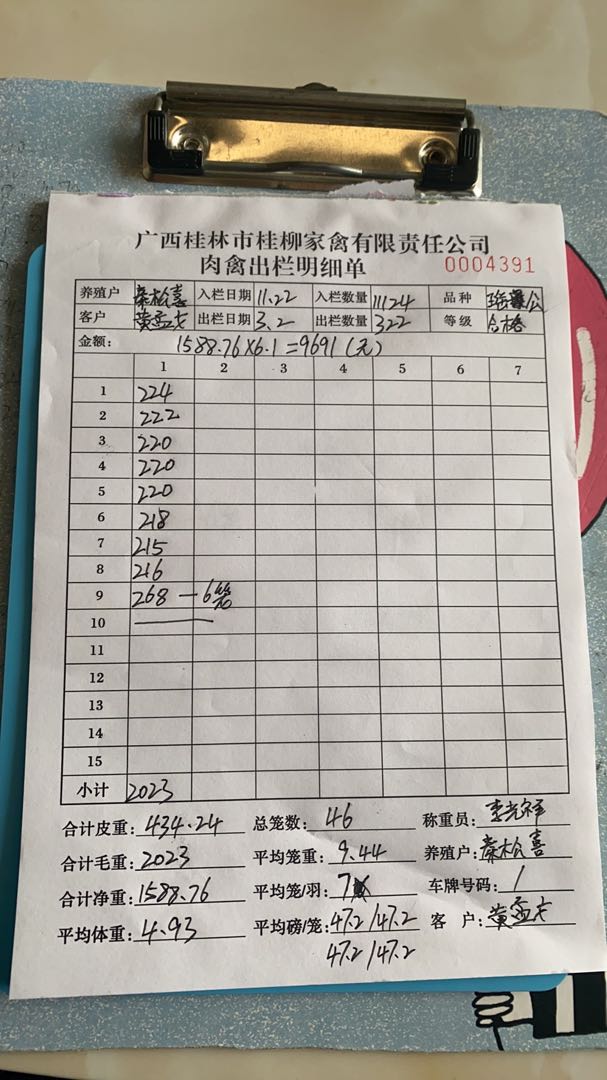 广西桂林市桂柳家禽有限责任公司
肉禽出栏明细单 0004391
养殖户 秦松喜 入栏日期 11.22 入栏数量 11124 品种 公
客户 黄孟 出栏日期 3.2 出栏数量 322 等级 合格
金额: 1588.76×6.1=9691(元)
1 2 3 4 5 6 7
1 224
2 222
3 220
4 220
5 220
6 218
7 215
8 216
9 268 — 6笼
10
11
12
13
14
15
小计 2023
合计皮重: 434.24 总笼数: 46 称重员: 李光祥
合计毛重: 2023 平均笼重: 9.44 养殖户: 秦松喜
合计净重: 1588.76 平均笼/羽: 7 车牌号码: /
平均体重: 4.93 平均磅/笼: 47.2/47.2 客户: 黄孟
47.2/47.2